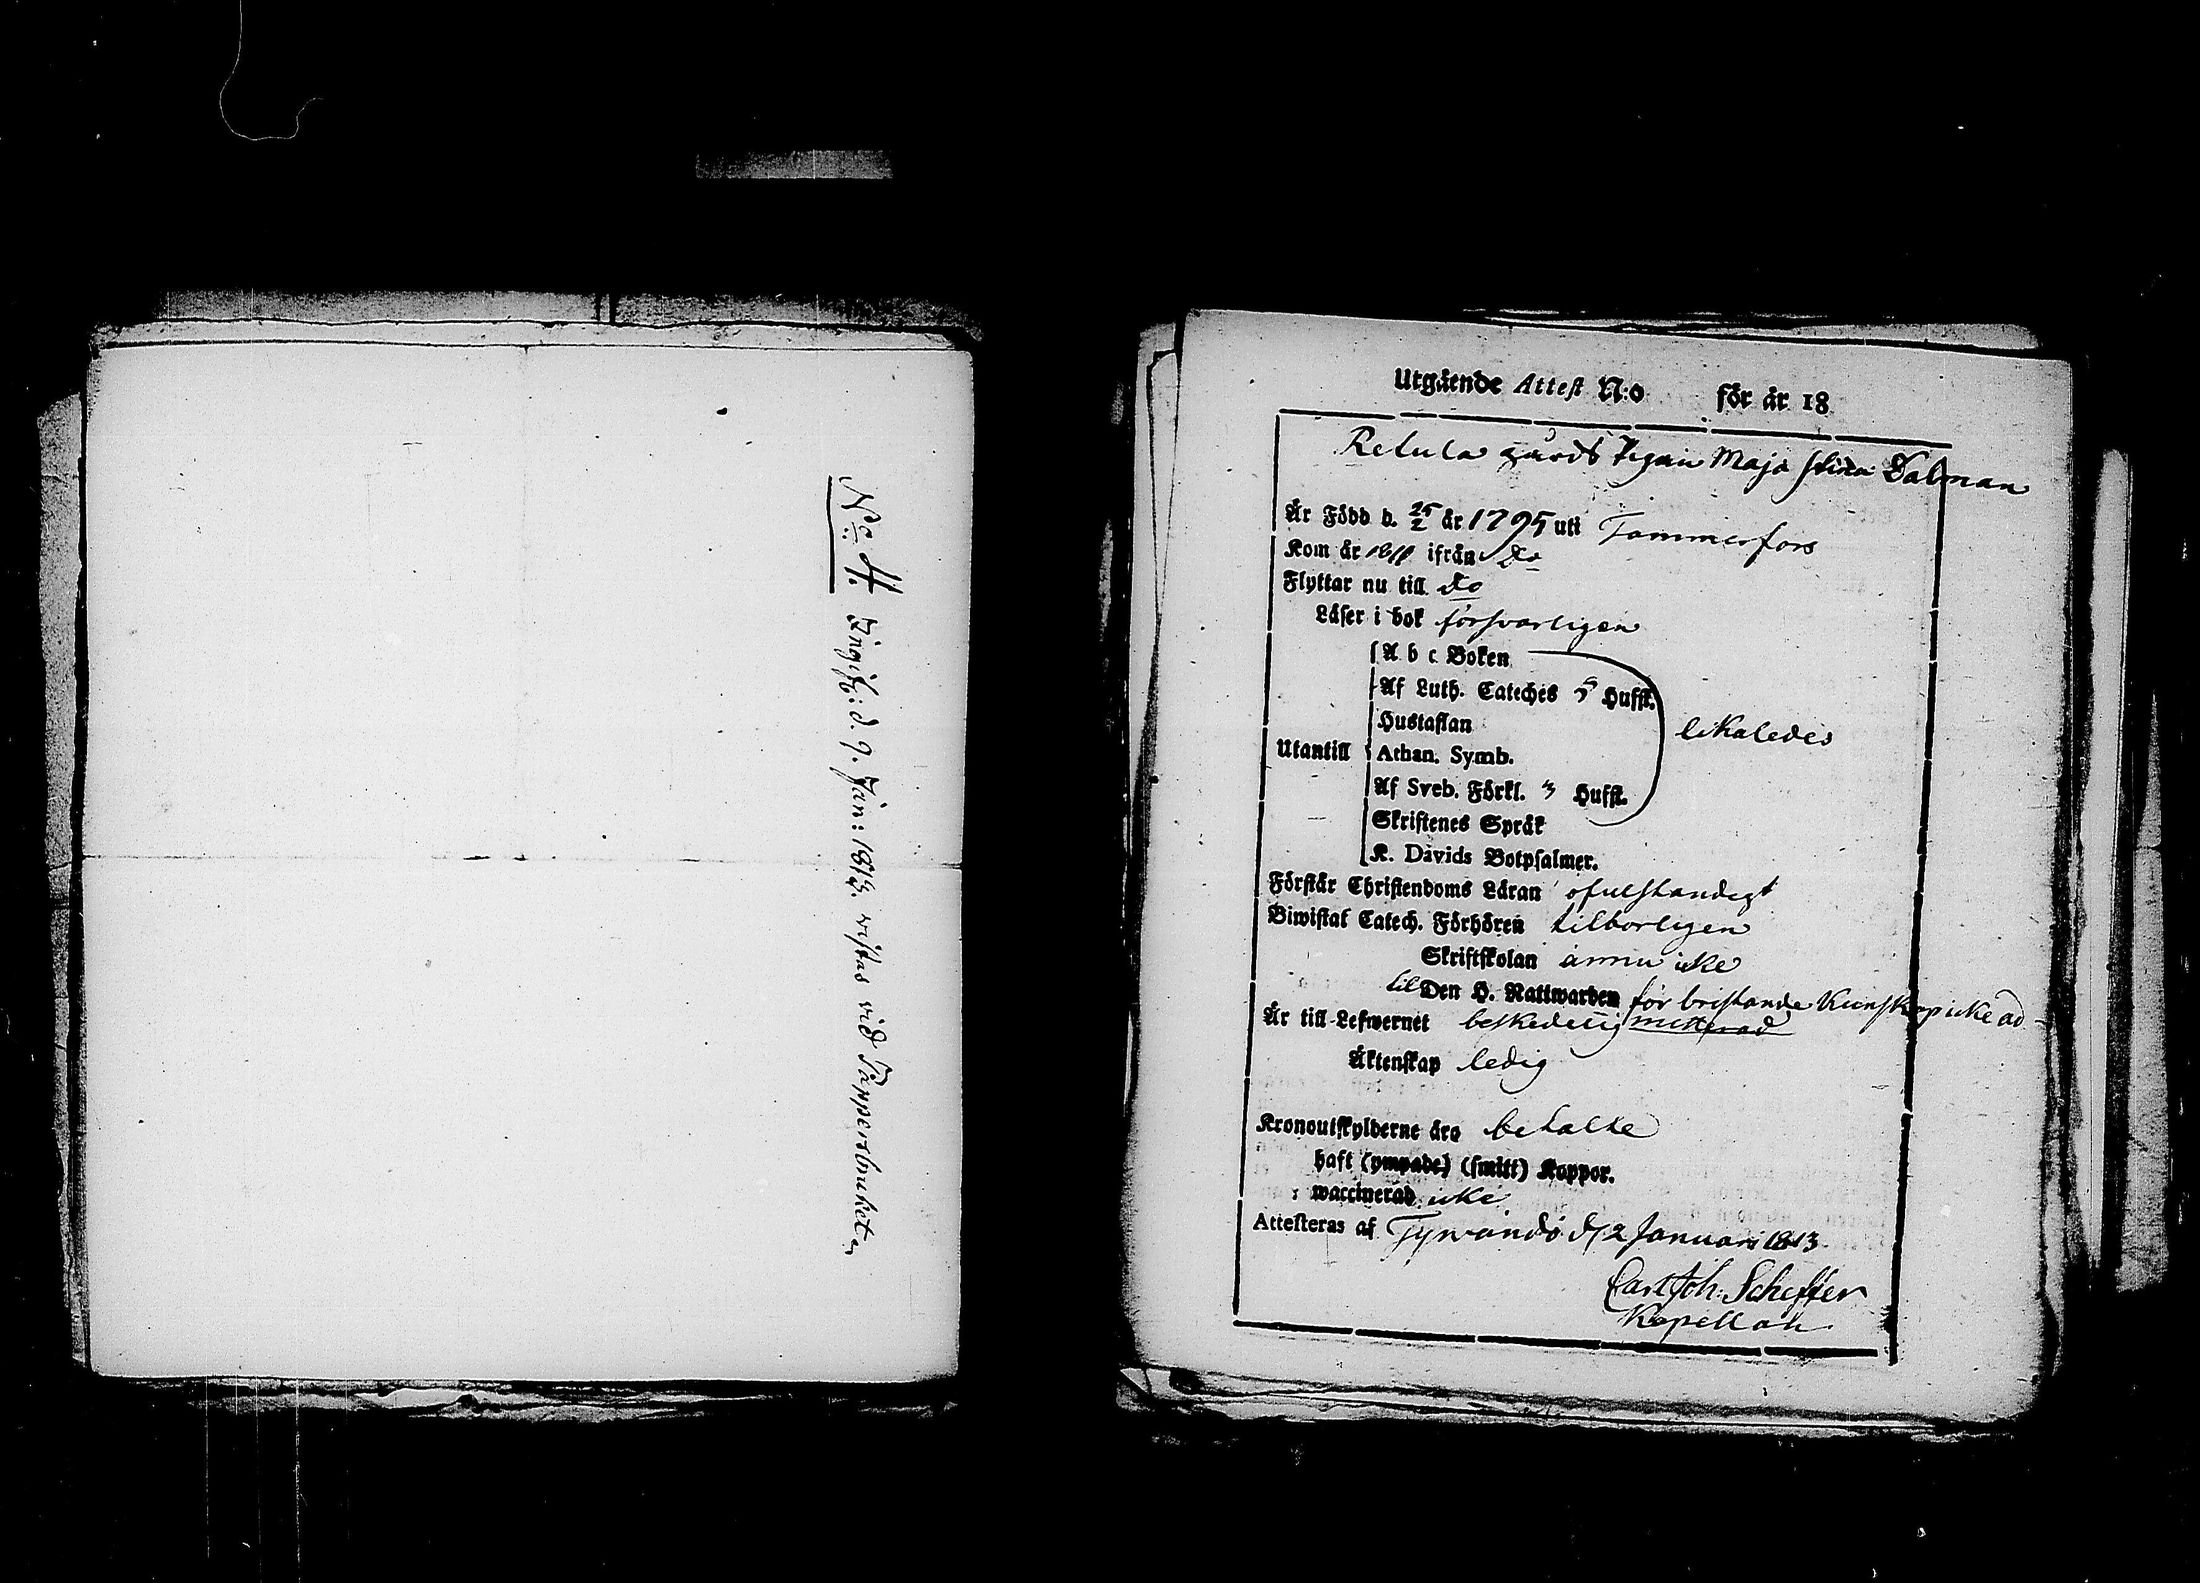 No 4. Ingift: d. 9. Jan: 1813. vistas vid Tappersbuket
Utgående Attest N:o för år 18
Retula gårds Pigan Maja Stina Dalman
Är Född d. 25/2 år 1795 uti Tammerfors
Kom år 1811 ifrån Do
Flyttar nu till Do
Läser i bok försvarligen
A b c Boken
Af Luth. Cateches 5 Hufst.
Hustaflan
likaledes
Utantill Athan. Symb.
Af Sveb. Förkl. 3 Hufst.
Skriftenes Språk
K. Davids Botpsalmer.
Förstår Christendoms Läran ofulständigt
Biwistat Catech. Förhören tilbörligen
Skriftskolan ännu icke
til Den H. Nattwarden för bristande Kunskap icke ad-
Är till Lefwernet beskedelig mitterad
Äktenskap ledig
Kronoutskylderne äro betalte
haft (ympade) (smitt) Koppor.
: waccinerad icke
Attesteras af Tyrvändö d. 2 Januari 1813
Carl Joh: Scheffer
Kapellan